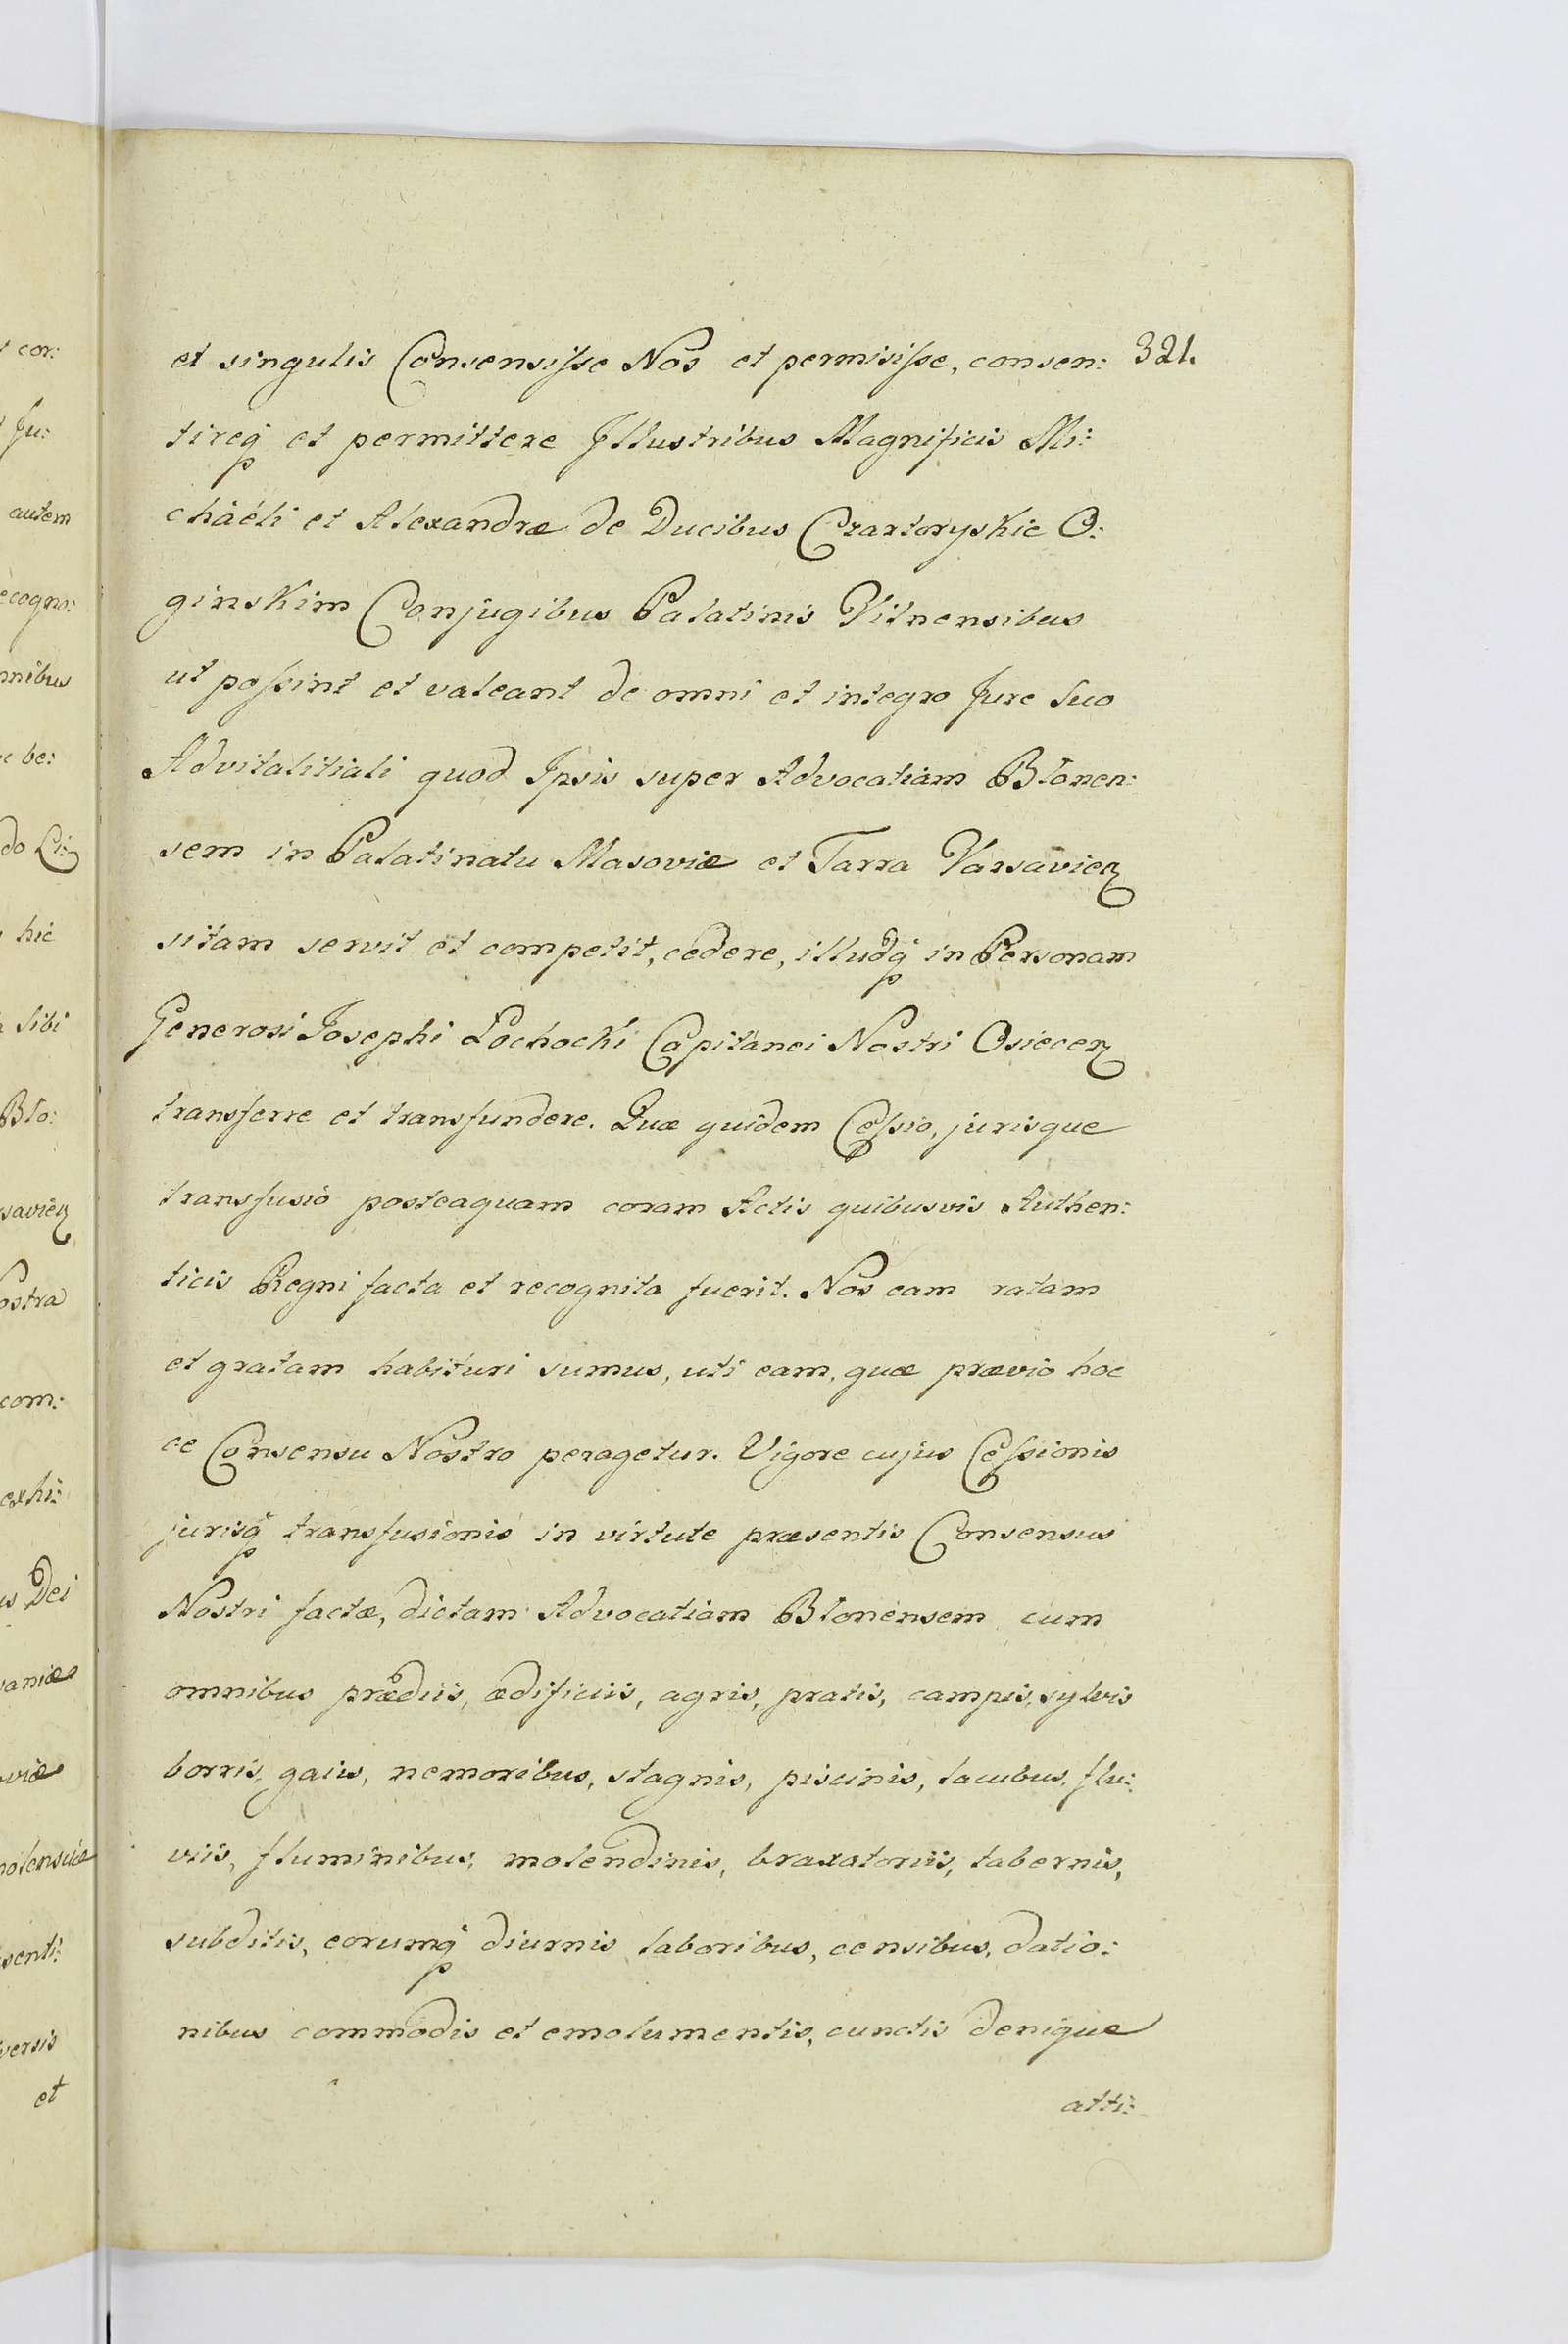 et singulis Consensiſse Nos et permisiſse, consen: 321.
tireq́ et permittere Illustribus Magnificis Mi:
chàéli et Alexandræ de Ducibus Czartoryskie O:
ginskim Conjugibus Palatinis Vilnensibus
ut poſsint et valeant de omni et integro Jure Suo
Advitalitiali quod Ipsis super Advocatiam Blonen:
sem in Palatinatu Masoviæ et Tarra Varsavien
sitam servit et competit, cedere, illudq́ in Personam
Generosi Josephi Lochocki Capitanei Nostri Osiecen
transferre et transfundere. Quæ quidem Ceſsio, jurisque
transfusio posteaquam coram Actis quibusvis Authen:
ticis Regni facta et recognita fuerit. Nos eam ratam
et gratam habituri sumus, uti eam, quæ prævio hoc
ce Consensu Nostro peragetur. Vigore cujus Ceſsionis
jurisq́ transfusionis in virtute præsentis Consensus
Nostri factæ, dictam Advocatiam Blonensem cum
omnibus prædiis, ædificiis, agris, pratis, campis, sylvis
borris, gaiis, nemoribus, stagnis, piscinis, lacubus, flu:
viis, fluminibus, molendinis, braxatoriis, tabernis,
subditis, eorumq́ diurnis laboribus, censibus, datio:
nibus commodis et emolumentis, cunctis denique
atti:
cor:
Ju:
autem
ecogno:
nnibus
be:
do Li:
hic
Sibi
Blo:
savien
ostra
com:
exhi:
Dei
vaniæ
viæ
nolensciæ
senti:
versis
et